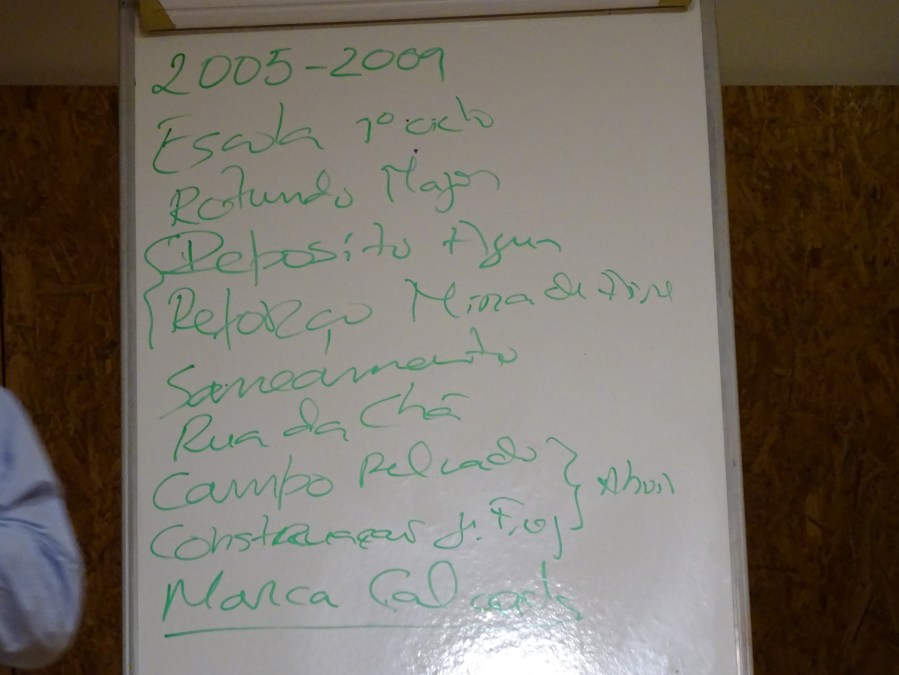 2005-2009
Escola 1º ciclo
Rotundo Major
Deposito Agua
Reforço Mina de
Saneamento
Rua da Chã
Campo Relvado
Construçao J.
Marca